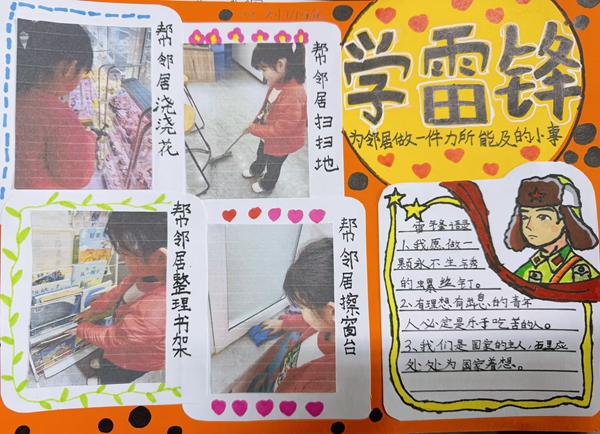 学雷锋
为邻居做一件力所能及的小事
帮邻居浇浇花
帮邻居扫扫地
帮邻居整理书架
帮邻居擦窗台
雷锋语录
1.我愿做一
颗永不生锈
的螺丝钉。
2.有理想有出息的青年
人必定是乐于吃苦的人。
3.我们是国家的主人,
处处为国家着想。